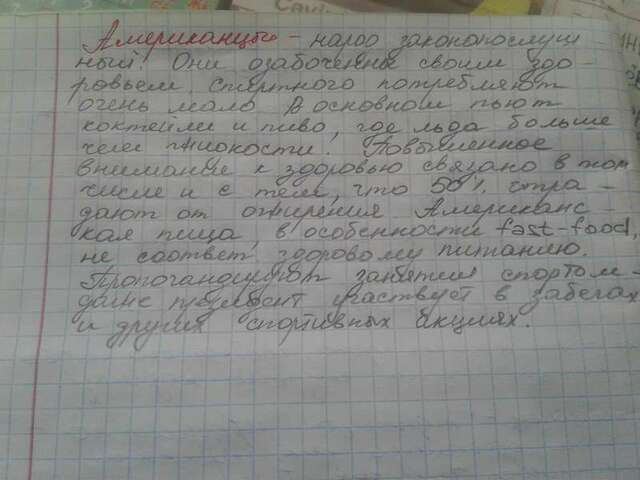 Американцы - народ законопослуш
ный! Они озабочены своим здо-
ровьем, спиртного потребляют
очень мало. В основном пьют
коктейли и пиво, где льда больше
чем жидкости! Повышенное
внимание к здоровью связано в том
числе и с тем, что 50% стра-
дают от ожирения. Американс-
кая пища, в особенности fast-food,
не соответ. здоровому питанию.
Пропогандируют занятия спортом -
даже президент участвует в забегах
и других спортивных акциях.